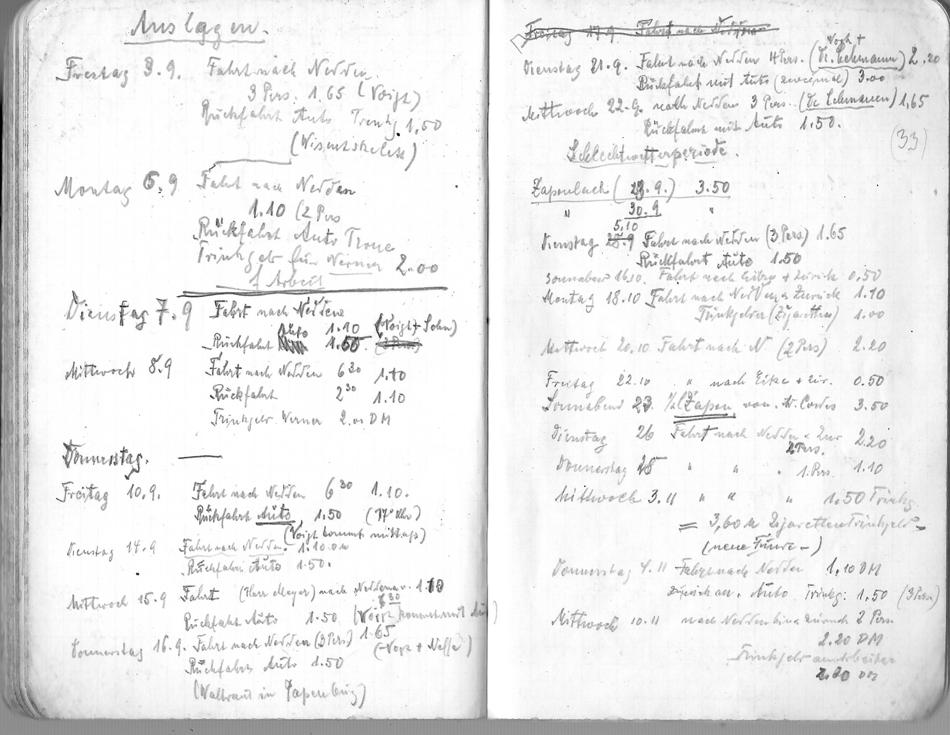 Auslagen.
Freitag 3.9. Fahrt nach Nedden
3 Pers. 1.65 (Voigt)
Rückfahrt Auto Trinkg. 1,50
(Wisentskelett)
Montag 6.9 Fahrt nach Nedden
1.10 (2 Pers
Rückfahrt Auto
Trinkgeld für Werner 2.00
f Arbeit
Dienstag 7.9 Fahrt nach Neddene
Auto 1.10 (Voigt + Sohn)
Rückfahrt 1.50
Mittwoch 8.9 Fahrt nach Nedden 6 30 1.10
Rückfahrt 2 30 1.10
Trinkgeld Werner 2.00 DM
Donnerstag. —
Freitag 10.9. Fahrt nach Nedden 6 30 1.10.
Rückfahrt Auto 1.50 (17 Uhr)
(Voigt kommt mittags)
Dienstag 14.9 Fahrt nach Nedden. 1.10 DM
Rückfahrt Auto 1.50.
Mittwoch 15.9 Fahrt (Herr Meyer) nach 1.10
Rückfahrt Auto 1.50 (Voigt kommt mit
Donnerstag 16.9. Fahrt nach Nedden (3 Pers) 1.65 (Vogt + Neffe)
Rückfahrt Auto 1.50
(Waltraut in Papenburg)
Freitag 17.9 Fahrt nach Nedden
Voigt +
Dienstag 21.9. Fahrt nach Nedden 4 Pers. (Dr. Lehmann) 2,20
Rückfahrt mit Auto (zweimal) 3.00
Mittwoch 22.9. nach Nedden 3 Pers. (Dr Lehmann) 1,65
Rückfahrt mit Auto 1.50.
(33)
Schlechtwetterperiode.
Zapenbach (23.9.) 3.50
" 30.9 "
5.10
Dienstag 28.9 Fahrt nach Nedden (3 Pers) 1.65
Rückfahrt Auto 1.50
Sonnabend Fahrt nach + zurück 0,50
Montag 18.10 Fahrt nach Nedden + zurück 1.10
Trinkgelder (Zigaretten) 1.00
Mittwoch 20.10 Fahrt nach N (2 Pers) 2.20
Freitag 22.10 " nach 0.50
Sonnabend 23 von 3.50
Dienstag 26 Fahrt nach Nedden + Zur 2.20
2 Pers.
Donnerstag 28 " " 1 Pers. 1.10
Mittwoch 3.11 " " " 1,50 Trinkg.
= 3,60 M Zigaretten Trinkgeld
(neue Funde—)
Donnerstag 4.11 Fahrt nach Nedden 1,10 DM
Auto Trinkg. 1,50 (3 Pers)
Mittwoch 10.11 nach Nedden hin zurück 2 Pers
2.20 DM
Trinkgeld
2.00 DM